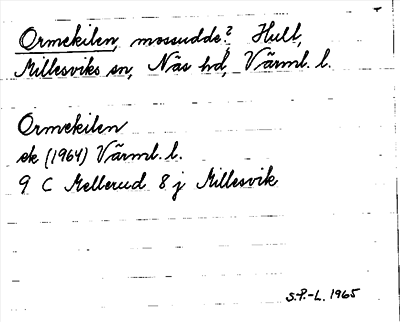 Ormekilen, mossudde? Hult,
Millesviks sn, Näs hd, Värml. l.
Ormekilen
ek (1964) Värml. l.
9 C Mellerud 8 j Millesvik
S.P.-L. 1965